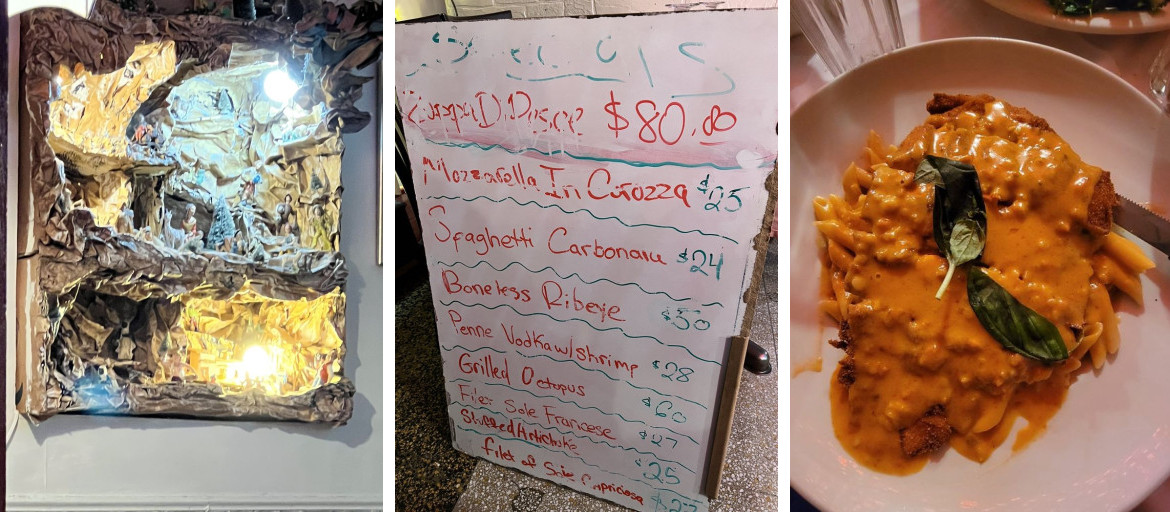 $80.00
Mozzarella In Carozza $25
Spaghetti Carbonara $24
Boneless Ribeye $50
Penne Vodka w/shrimp $28
Grilled Octopus $60
Filet Sole Francese $27
Stuffed Artichoke $25
filet of Sole Capricciosa $27